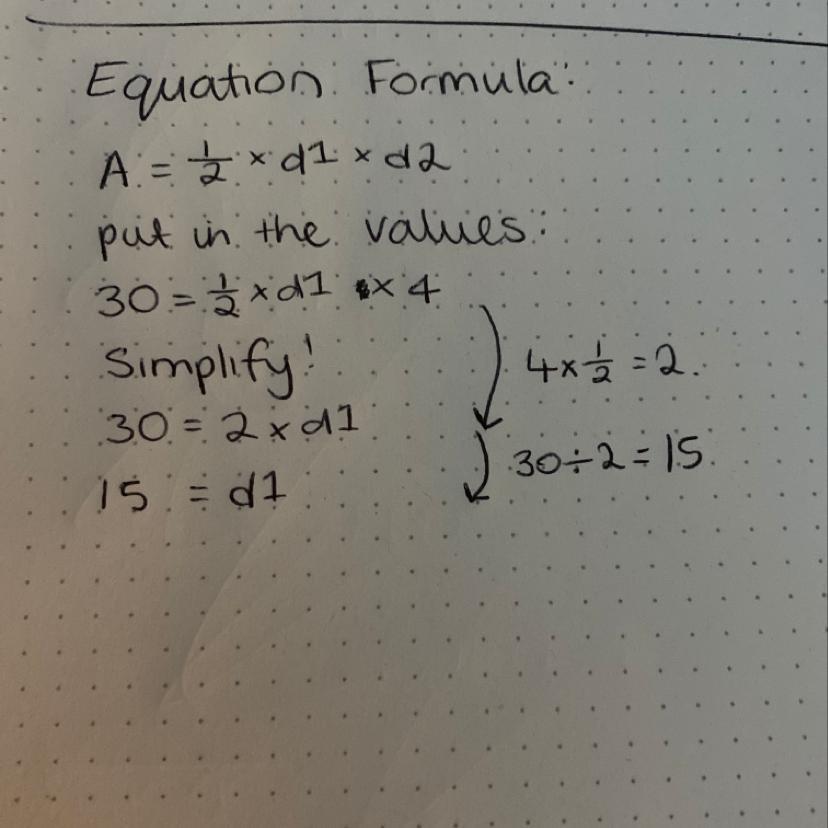 Equation Formula:
A = 1/2 × d1 × d2
put in the values:
30 = 1/2 × d1 × 4
Simplify!
4 × 1/2 = 2.
30 = 2 × d1
30 ÷ 2 = 15
15 = d1